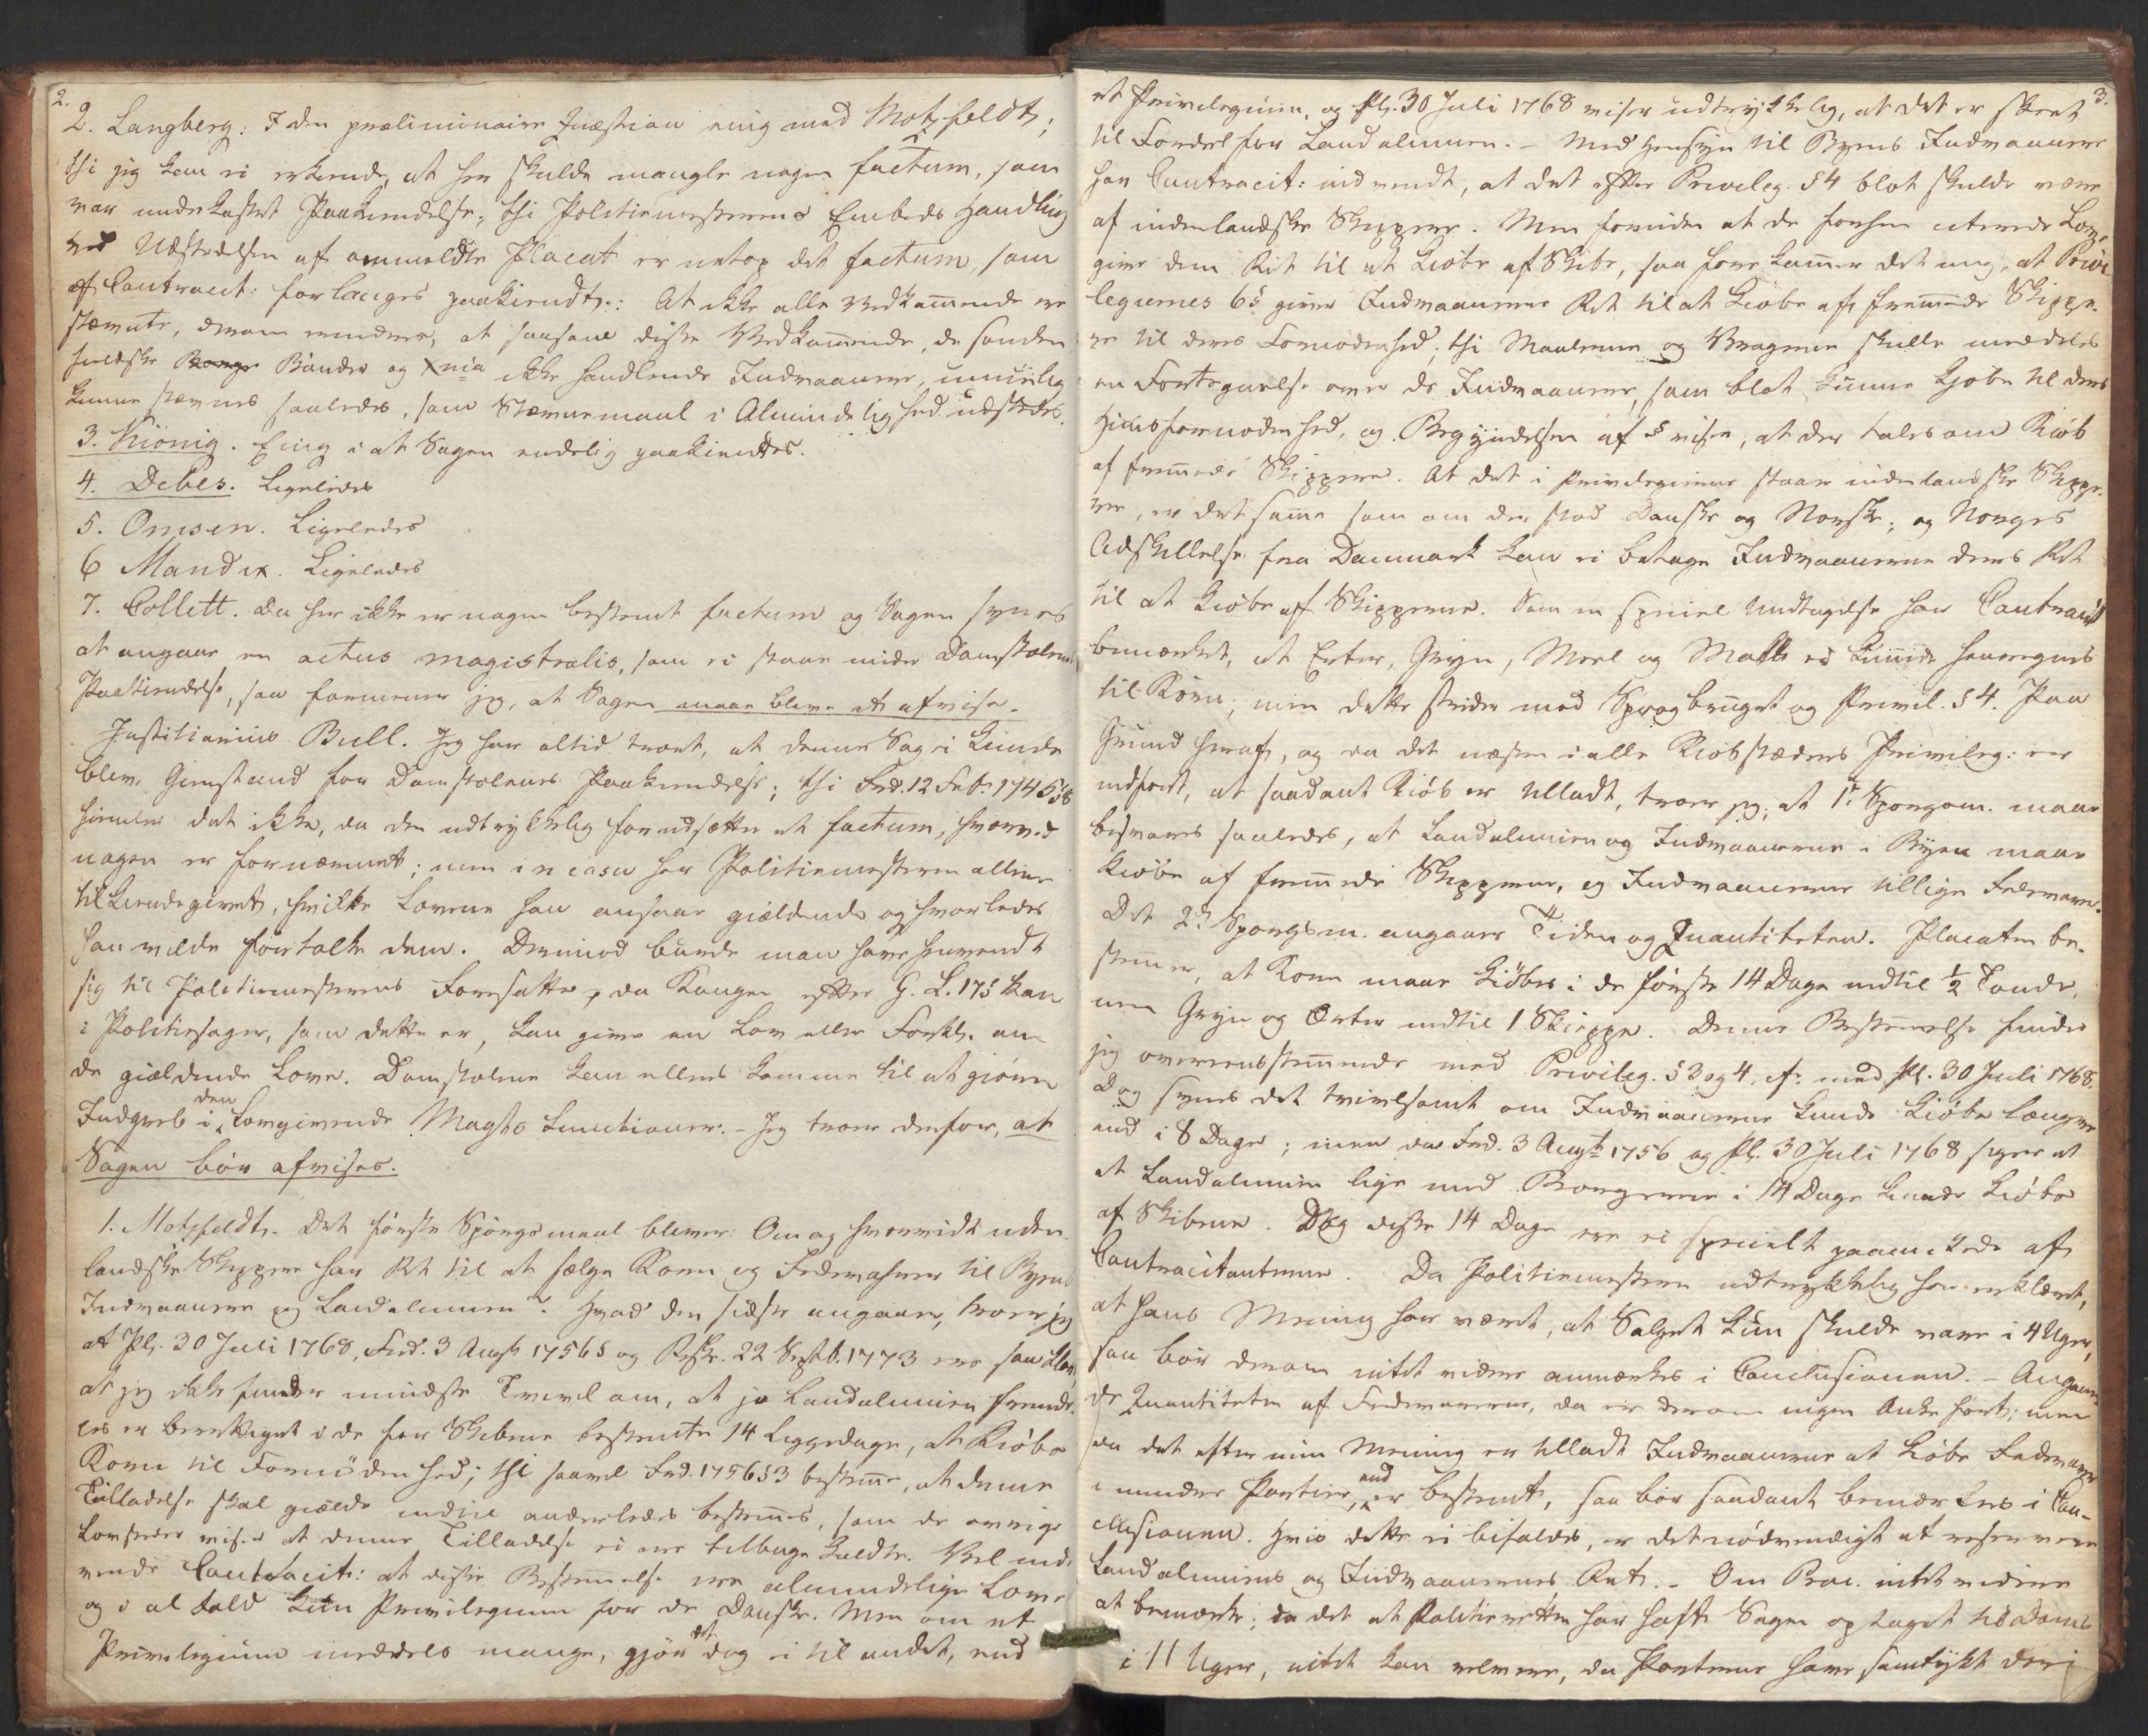 2.
2. Langberg. I den præliminaire Quæstion enig med Motzfeldt;
thi jeg kan ei erkiende, at her skulde mangle nogen factum, som
var underkastet Paakiendelse; thi Politiemesterens Embeds Handling
ved Udstedelsen af anmeldte Placat er netop det factum, som
af Contracit: forlanges paakiendt.: At ikke alle Vedkommende ere
stævnte, derom mindes, at saasom disse Vedkommende, de sønden
fieldske Bønder og ikke handlende Indvaanere, umuelig
kunne stævnes saaledes, som Stævnemaal i Almindelighed udstedes.
3. Kiönig. Enig i at Sagen endelig paakiendtes.
4. Debes. Ligeledes
5. Omsen. Ligeledes
6 Mandix. Ligeledes
7. Collett. Da her ikke er nogen bestemt factum og Sagen synes
at angaae en actus magistralis, som ei staaer under Domstolenes
Paakiendelse, saa formener jeg, at Sagen maae blive at afvise.
Justitiarius Bull. Jeg har altid troet, at denne Sag ei kunde
blive Gienstand for Domstolenes Paakiendelse; thi Frd. 12 Febr 1745 §8
hiemler det ikke, da den udtrykkelig forudsætter et factum, hvorved
nogen er fornærmet; men in casu har Politiemesteren allene
tilkiendegivet, hvilke Lovene han ansaae gieldende og hvorledes
han vilde fortolke dem. Derimod burde man have henvendt
sig til Politiemesterens Foresatte, da Kongen efter G. L. 175 kan
i Politiesager, som dette er, kan give en Lov eller Forkl. an
de gieldende Love. Domstolene kan ellers komme til at giöre
Indgreb i den Lovgivende Magts Functioner. - Jeg troer derfor, at
Sagen bör afvises.
1. Motzfeldt. Det förste Spörgsmaal bliver: Om og hvorvidt uden
landske Skippere har Ret til at sælge Korn og Fedevahrer til Byens
Indvaanere og Landalmuen? Hvad den sidste angaaer, troer jeg
at Pl. 30 Juli 1768, Frd. 3 Augst 1756 § og Reskr. 22 Septb. 1773 ere saa klare,
at jeg ikke finder mindste Tvivl om, at jo Landalmuen fremde-
les er berettiget i de for Skibene bestemte 14 Liggedage, at kiöbe
Korn til Fornödenhed; thi saavel Frd. 1756 §3 bestemmer, at denne
Tilladelse skal gielde indtil anderledes bestemmes, som de övrige
Lovsteder viser at denne Tilladelse ei er tilbage kaldt. Vel ind-
vende Contracit: at disse Bestemmelse ere almindelige Love
og i al Fald kun Privilegium for de Danske. Men om et
Privilegium meddeles mange, gjör det dog ei til andet, end
3.
et Privilegium, og Pl. 30 Juli 1768 viser udtrykkelig, at det er skeet
til Fordel for Landalmuen. - Med Hensyn til Byens Indvaanere
har Contracit: indvendt, at det efter Privileg. §4 blot skulde være
af indenlandske Skippere. Men foruden at de forhen citerede Love
give dem Ret til at kiöbe af Skibe, saa forekommer det mig, at Privi
legiernes 6§ giver Indvaanerne Ret til at kiöbe af fremmede Skippe-
re til deres Fornödenhed; thi Maalerne og Vragerne skulle meddeles
en Fortegnelse over de Indvaanere, som blot kunne kjöbe til deres
Huusfornödenhed, og Begyndelsen af § viser, at der tales om Kiöb
af fremmede Skippere. At det i Privilegierne staaer indenlandske Skippe-
re, er det samme som om der stod Danske og Norske; og Norges
Adskillelse fra Danmark kan ei betage Indvaanerne deres Ret
til at kiöbe af Skipperne. Som en speciel Undtagelse har Contracit
bemærket, at Erter, Gryn, Meel og Malt ei kunde henregnes
til Korn; men dette strider mod Sprogbruget og Privil. §4. Paa
Grund heraf, og da det næsten i alle Kiöbstæders Privileg: er
indfört, at saadant Kiöb er tilladt, troer jeg, at 1te Spörgsm. maae
besvares saaledes, at Landalmuen og Indvaanerne i Byen maae
kiöbe af fremmede Skippere, og Indvaanerne tillige Fedevarer.
Det 2det Spörgsm. angaaer Tiden og Quantiteten. Placaten be-
stemmer, at Korn maae kiöbes i de förste 14 Dage indtil ½ Tönde,
men Gryn og Erter indtil 1 Skieppe. Denne Bestemmelse finder
jeg overeensstemmende med Privileg. §3 og 4, cfr. med Pl. 30 Juli 1768.
Dog synes det tvivlsomt om Indvaanerne kunde kiöbe længere
end i 8 Dage; men da Frd. 3 Augst 1756 og Pl. 30 Juli 1768 siger at
at Landalmuen lige med Borgerne i 14 Dage kunde kiöbe
af Skibene. Dog disse 14 Dage ere ei specielt paaankede af
Contracitanterne. Da Politiemesteren udtrykkelig har erklæret,
at hans Mening har været, at Salget kun skulde vare i 4 Uger,
saa bör derom intet videre anmærkes i Conclusionen. - Angaaen
de Quantiteten af Fedevarerne, da er derom ingen Anke fört; men
da det efter min Mening er tilladt Indvaanerne at kiöbe Fedevarer
i mindre Partier, end er bestemt, saa bör saadant bemærkes i Con-
clusionen. Hvis dette ei bifaldes, er det nödvendigt at reservere
Landalmuens og Indvaanernes Ret. - Om Proc. intet videre
at bemærke; da det at Politieretten har havt Sagen optaget til Doms
i 11 Uger, intet kan relevere, da Parterne have samtykt deri